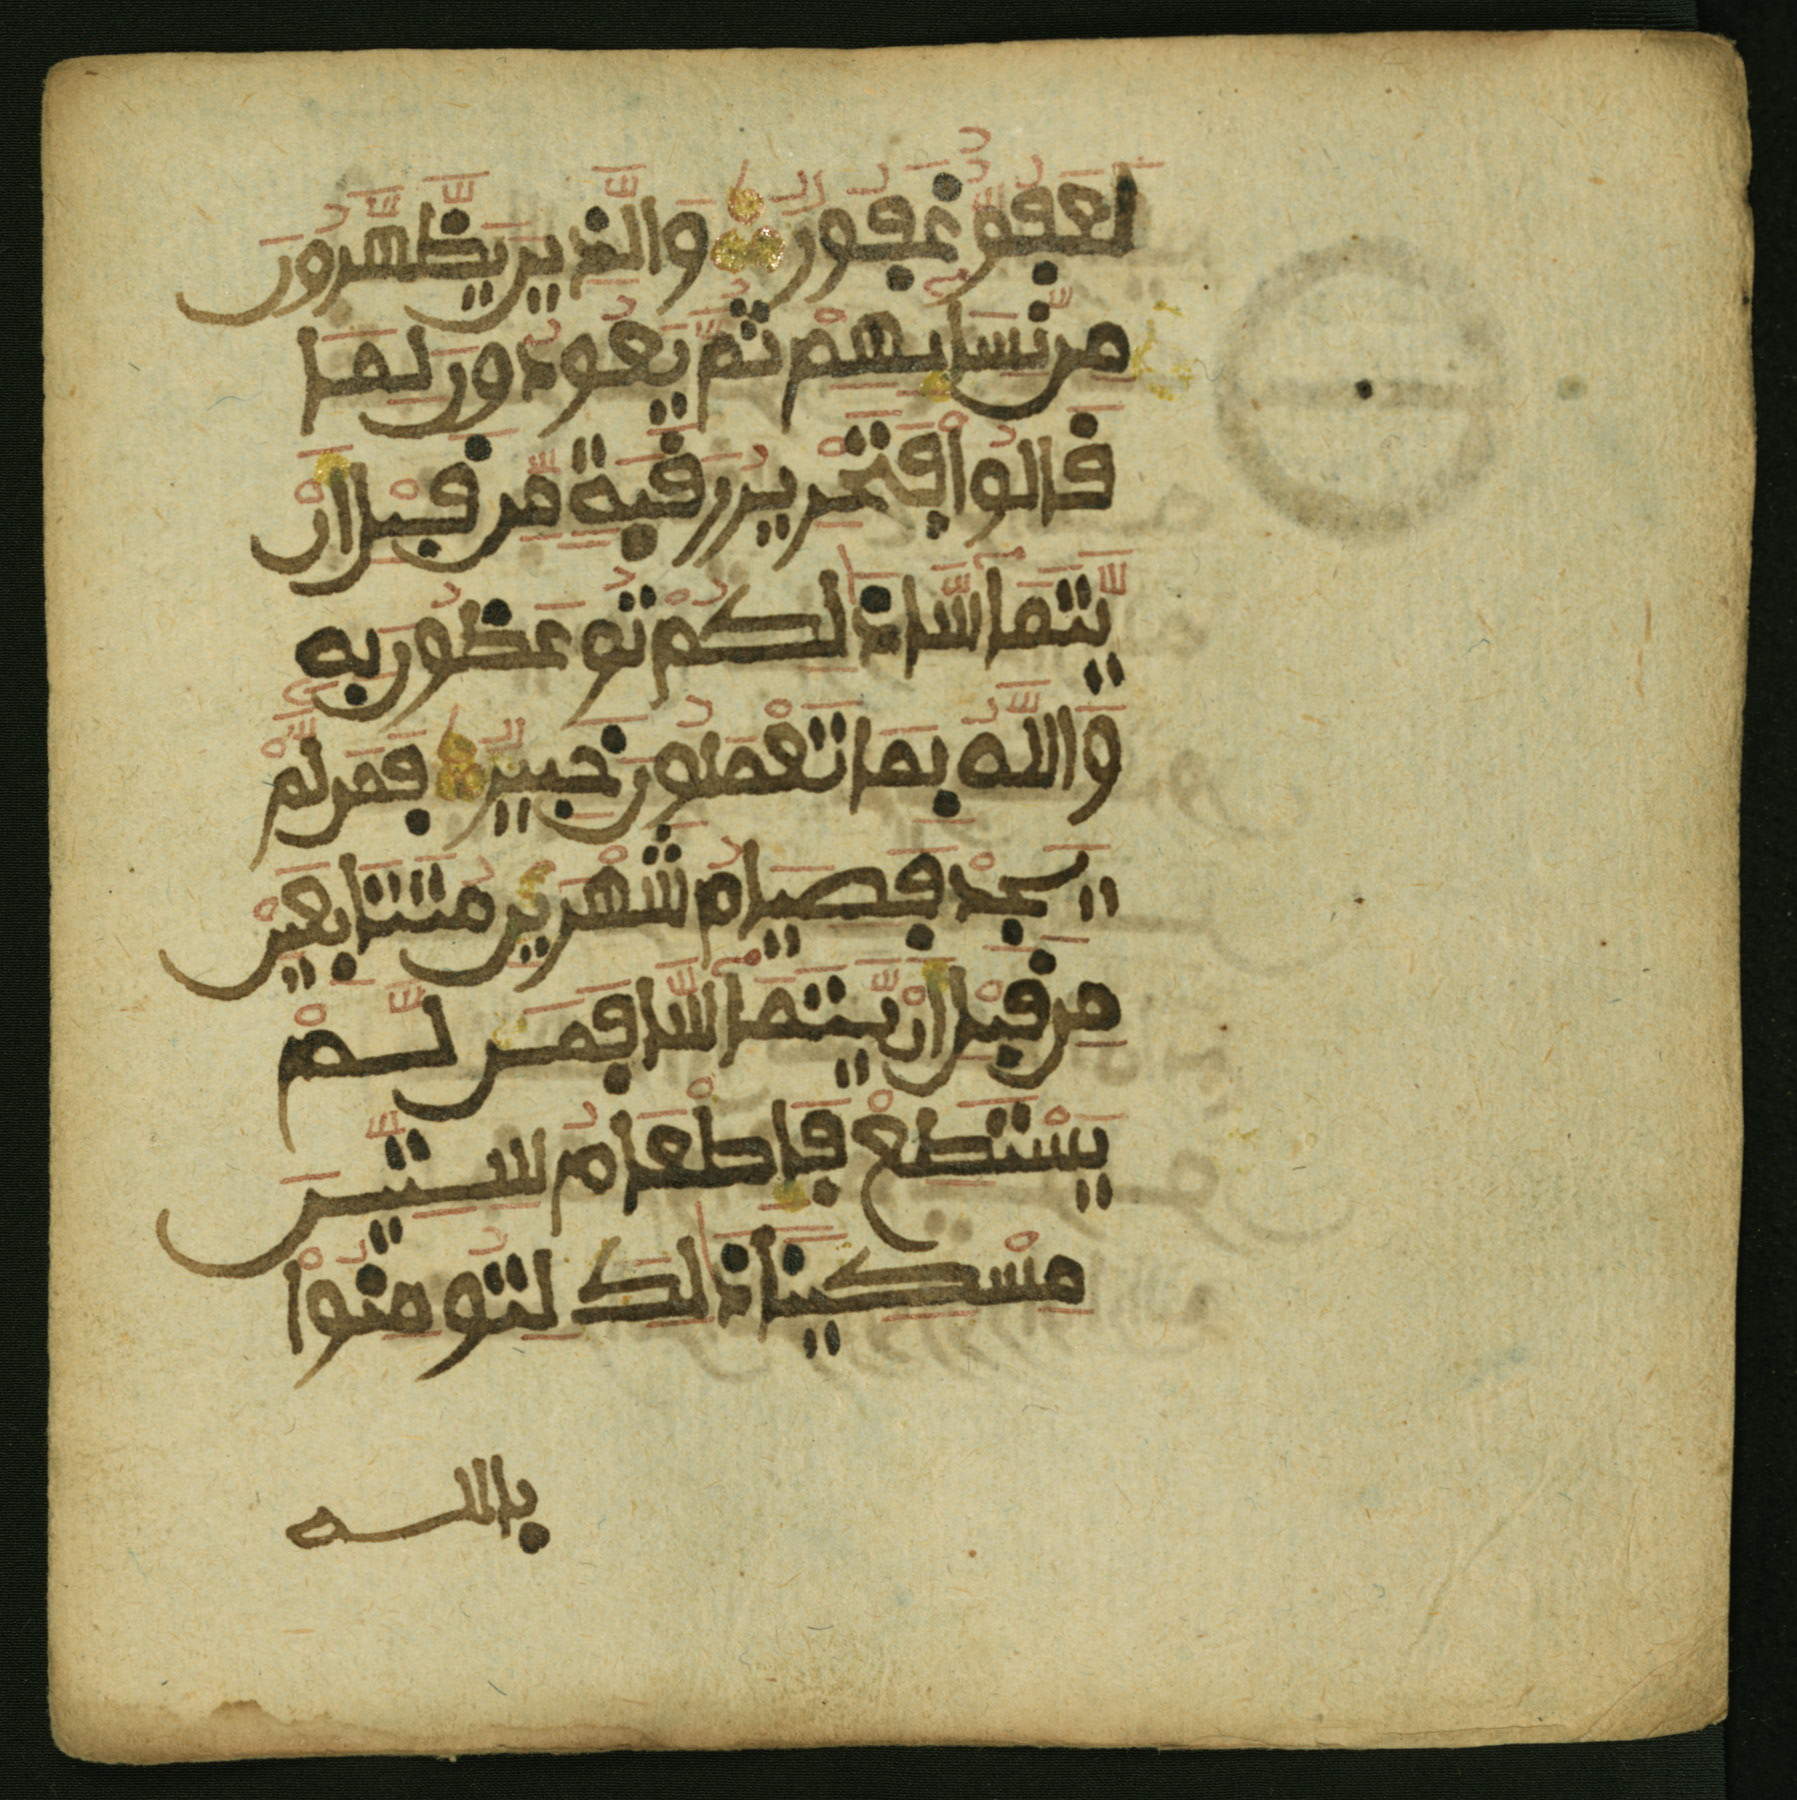 لَعَفُوٌّ غَفُورٌ وَالَّذِينَ يَظَّهَّرُونَ
مِن نِّسَائِهِمْ ثُمَّ يَعُودُونَ لِمَا
قَالُواْ فَتَحْرِيرُ رَقَبَةٍ مِّن قَبْلِ أَنْ
يَّتَمَاسَّا ذَٰلِكُمْ تُوعَظُونَ بِهِ
وَاللَّهُ بِمَا تَعْمَلُونَ خَبِيرٌ فَمَن لَّمْ
يَجِدْ فَصِيَامُ شَهْرَيْنِ مُتَتَابِعَيْنِ
مِن قَبْلِ أَنْ يَّتَمَاسَّا فَمَن لَّمْ
يَسْتَطِعْ فَإِطْعَامُ سِتِّينَ
مِسْكِينًا ذَٰلِكَ لِتُومِنُواْ
بالله